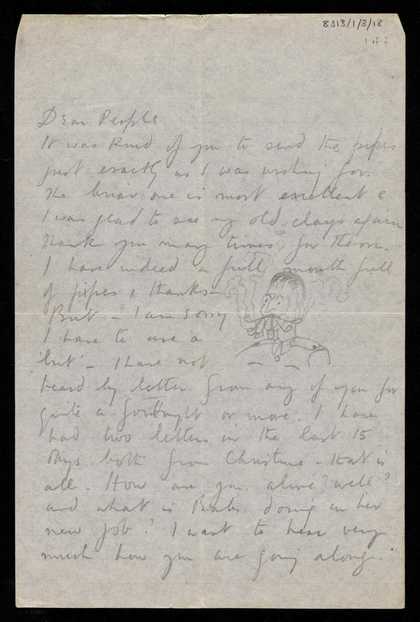 8313/1/3/18
Dear People
It was kind of you to send the pipes
just exactly as I was wishing for.
The briar one is most excellent &
I was glad to see my old clays again
thank you many times for them.
I have indeed a full mouth full
of pipes & thanks
But - I am sorry
I have to use a
'but' - I have not
heard by letter from any of you for
quite a fortnight or more. I have
had two letters in the last 15
days both from Christine - that is
all. How are you, alive? well?
and what is doing in her
new job? I want to hear very
much how you are going along.